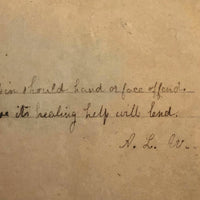 in should hand or face offend.
its healing help will lend.
A. L. W.